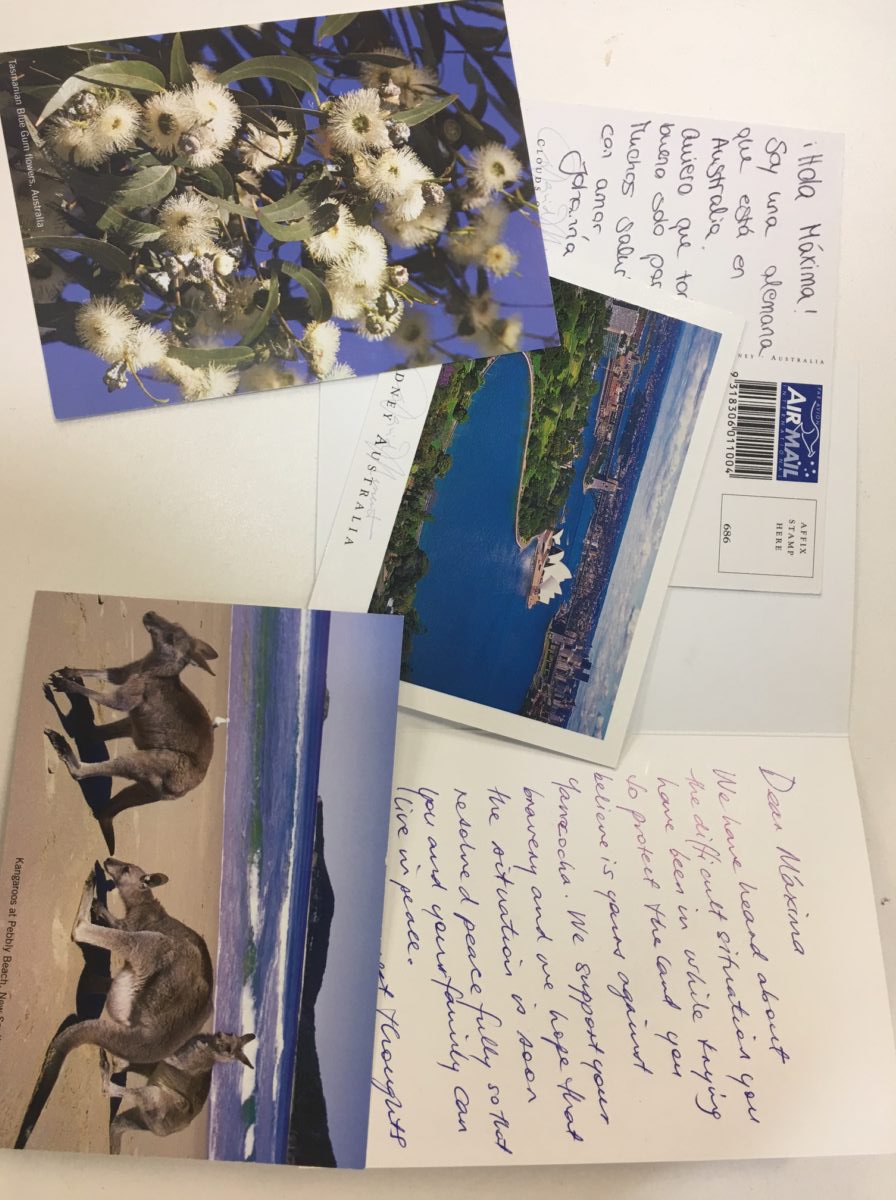 Tasmanian Blue Gum flowers, Australia
¡Hola Máxima!
Soy una alemana
que está en
Australia.
Quiero que
bueno solo
Muchos
con amor
CLOUDS
AUSTRALIA
PAR AVION
AIR MAIL
INTERNATIONAL
9 318306 011004
AFFIX
STAMP
HERE
686
AUSTRALIA
Dear Máxima
We have heard about
the difficult situation you
have been in while trying
to protect the land you
believe is yours against
Yanacocha. We support your
bravery and we hope that
the situation is soon
resolved peacefully so that
you and your family can
live in peace.
thoughts
Kangaroos at Pebbly Beach, New